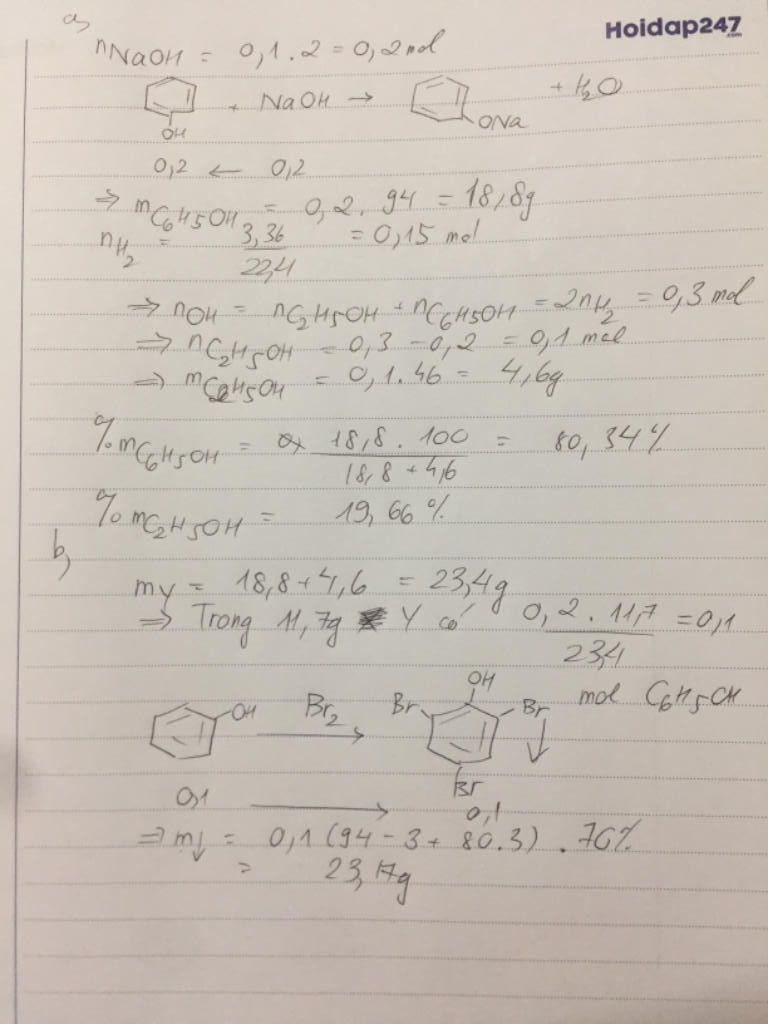 a,
Hoidap247.com
nNaOH = 0,1 . 2 = 0,2 mol
OH + NaOH → ONa + H2O
0,2 ← 0,2
⇒ mC6H5OH = 0,2 . 94 = 18,8g
nH2 = 3,36/22,4 = 0,15 mol
⇒ nOH = nC2H5OH + nC6H5OH = 2nH2 = 0,3 mol
⇒ nC2H5OH = 0,3 - 0,2 = 0,1 mol
⇒ mC2H5OH = 0,1 . 46 = 4,6g
%mC6H5OH = 18,8 . 100/18,8 + 4,6 = 80,34%
%mC2H5OH = 19,66%
b,
mY = 18,8 + 4,6 = 23,4g
⇒ Trong 11,7g Y có 0,2 . 11,7/23,4 = 0,1
mol C6H5OH
OH Br2 → Br OH Br ↓
Br
0,1 → 0,1
⇒ m↓ = 0,1 (94 - 3 + 80.3) . 70%
= 23,17g